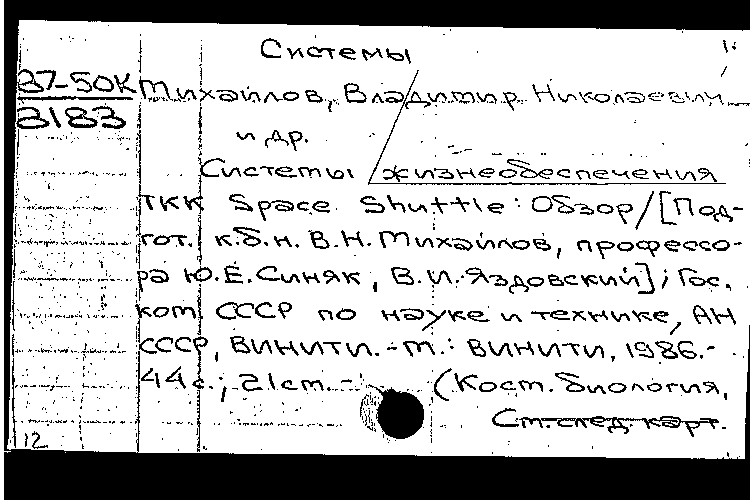 Системы
87-50К Михайлов, Владимир Николаевич
3183
и др.
Системы жизнеобеспечения
ТКК Space Shuttle: Обзор/[Под-
гот. к.б.н. В.Н. Михайлов, профессо-
ра Ю.Е. Синяк, В.И. Яздовский]; Гос.
ком. СССР по науке и технике, АН
СССР, ВИНИТИ. - М.: ВИНИТИ, 1986.-
44 с.; 21 см. - (Косм. биология,
См. след. карт.
12